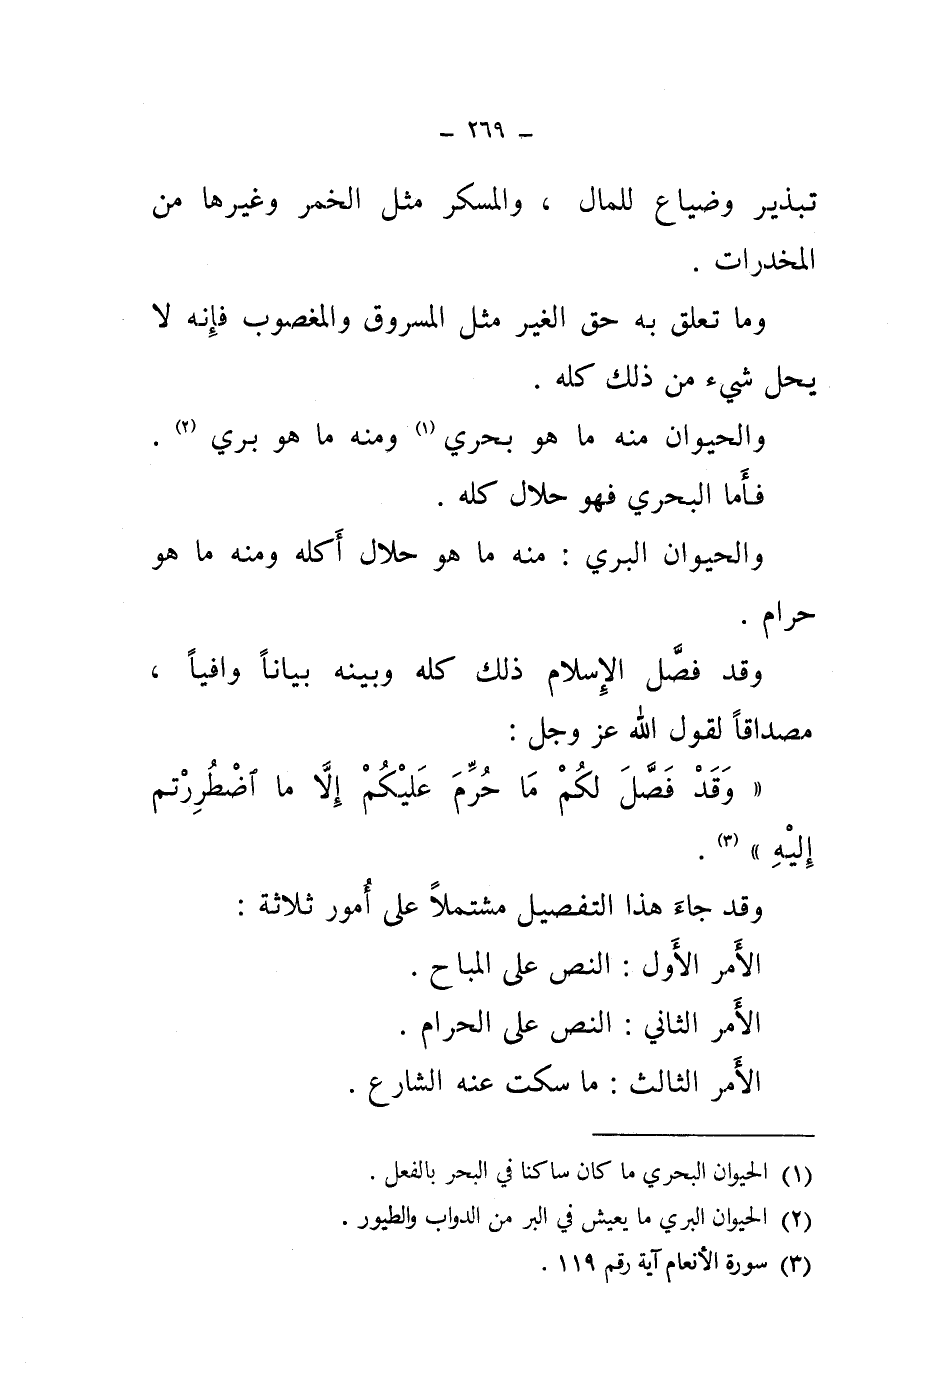 - ٢٦٩ -
تبذير وضياع للمال ، والمسكر مثل الخمر وغيرها من
المخدرات .
وما تعلق به حق الغير مثل المسروق والمغصوب فإنه لا
يحل شيء من ذلك كله .
والحيوان منه ما هو بحري (١) ومنه ما هو بري (٢) .
فأَما البحري فهو حلال كله .
والحيوان البري : منه ما هو حلال أَكله ومنه ما هو
حرام .
وقد فصَّل الإِسلام ذلك كله وبينه بياناً وافياً ،
مصداقاً لقول الله عز وجل :
« وَقَدْ فَصَّلَ لكُمْ مَا حُرِّمَ عَليْكُمْ إِلَّا ما ٱضْطُرِرْتم
إِليْهِ » (٣) .
وقد جاءَ هذا التفصيل مشتملاً على أُمور ثلاثة :
الأَمر الأَول : النص على المباح .
الأَمر الثاني : النص على الحرام .
الأَمر الثالث : ما سكت عنه الشارع .
(١) الحيوان البحري ما كان ساكنا في البحر بالفعل .
(٢) الحيوان البري ما يعيش في البر من الدواب والطيور .
(٣) سورة الأنعام آية رقم ١١٩ .